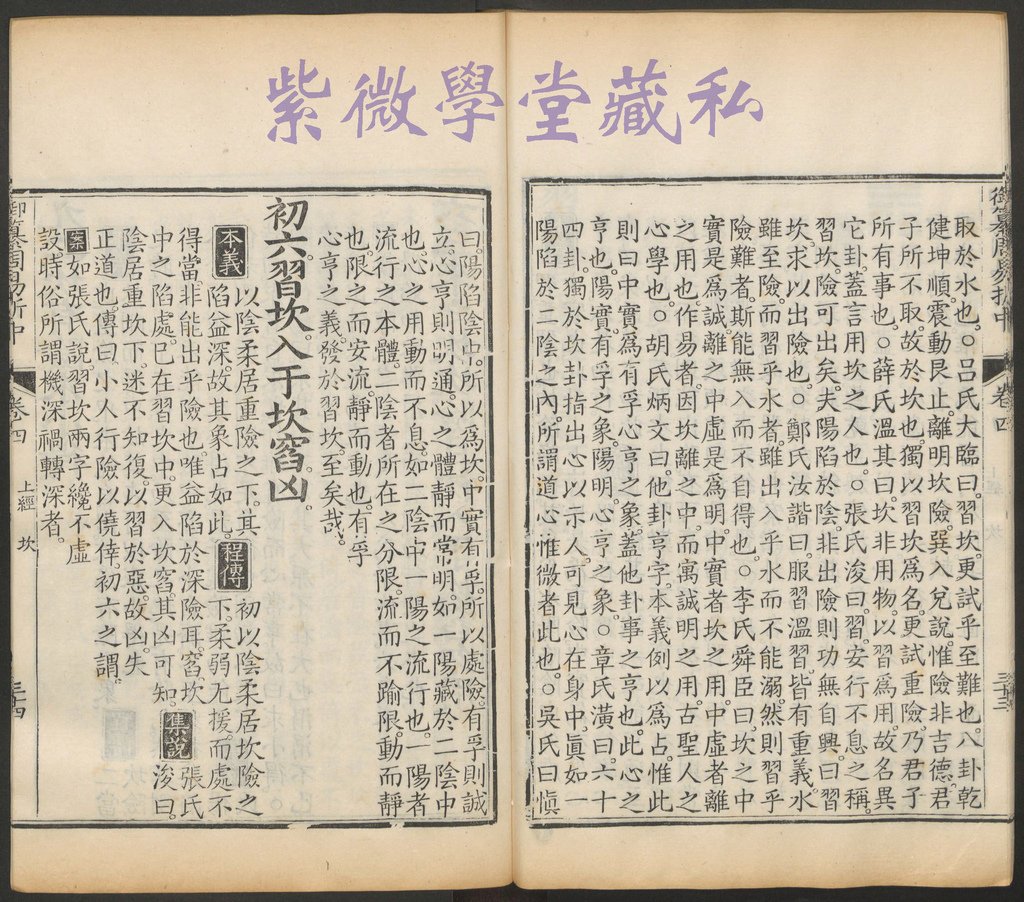 紫微學堂藏私
御纂周易折中 卷四 上經 坎 三十三
取於水也。○呂氏大臨曰。習坎。更試乎至難也。八卦乾
健坤順。震動艮止。離明坎險。巽入兌說。惟險非吉德。君
子所不取。故於坎也。獨以習坎爲名。更試重險。乃君子
所有事也。○薛氏溫其曰。坎非用物。以習爲用。故名異
它卦。蓋言用坎之人也。○張氏浚曰。習。安行不息之稱。
習坎。險可出矣。夫陽陷於陰。非出險則功無自興。曰習
坎。求以出險也。○鄭氏汝諧曰。服習溫習皆有重義。水
雖至險。而習乎水者。雖出入乎水而不能溺。然則習乎
險難者。斯能無入而不自得也。○李氏舜臣曰。坎之中
實是爲誠。離之中虛是爲明。中實者坎之用。中虛者離
之用也。作易者因坎離之中。而寓誠明之用。古聖人之
心學也。○胡氏炳文曰。他卦亨字。本義例以爲占。惟此
則曰中實爲有孚心亨之象。蓋他卦事之亨也。此心之
亨也。陽實。有孚之象。陽明。心亨之象。○章氏潢曰。六十
四卦。獨於坎卦指出心以示人。可見心在身中。眞如一
陽陷於二陰之內。所謂道心惟微者此也。○吳氏曰愼
曰。陽陷陰中。所以爲坎。中實有孚。所以處險。有孚則誠
立。心亨則明通。心之體靜而常明。如一陽藏於二陰中
也。心之用動而不息。如二陰中一陽之流行也。一陽者
流行之本體。二陰者所在之分限。流而不踰限。動而靜
也。限之而安流。靜而動也。有孚
心亨之義。發於習坎。至矣哉。
初六習坎入于坎窞凶。
本義 以陰柔居重險之下。其
陷益深。故其象占如此。
程傳 初以陰柔居坎險之
下。柔弱无援。而處不
得當。非能出乎險也。唯益陷於深險耳。窞。坎
中之陷處。已在習坎中。更入坎窞。其凶可知。
集說 張氏
浚曰。
陰居重坎下。迷不知復。以習於惡。故凶。失
正道也。傳曰。小人行險以僥倖。初六之謂。
案 如張氏說。習坎兩字纔不虛
設。時俗所謂機深禍轉深者。
御纂周易折中 卷四 上經 坎 三十四